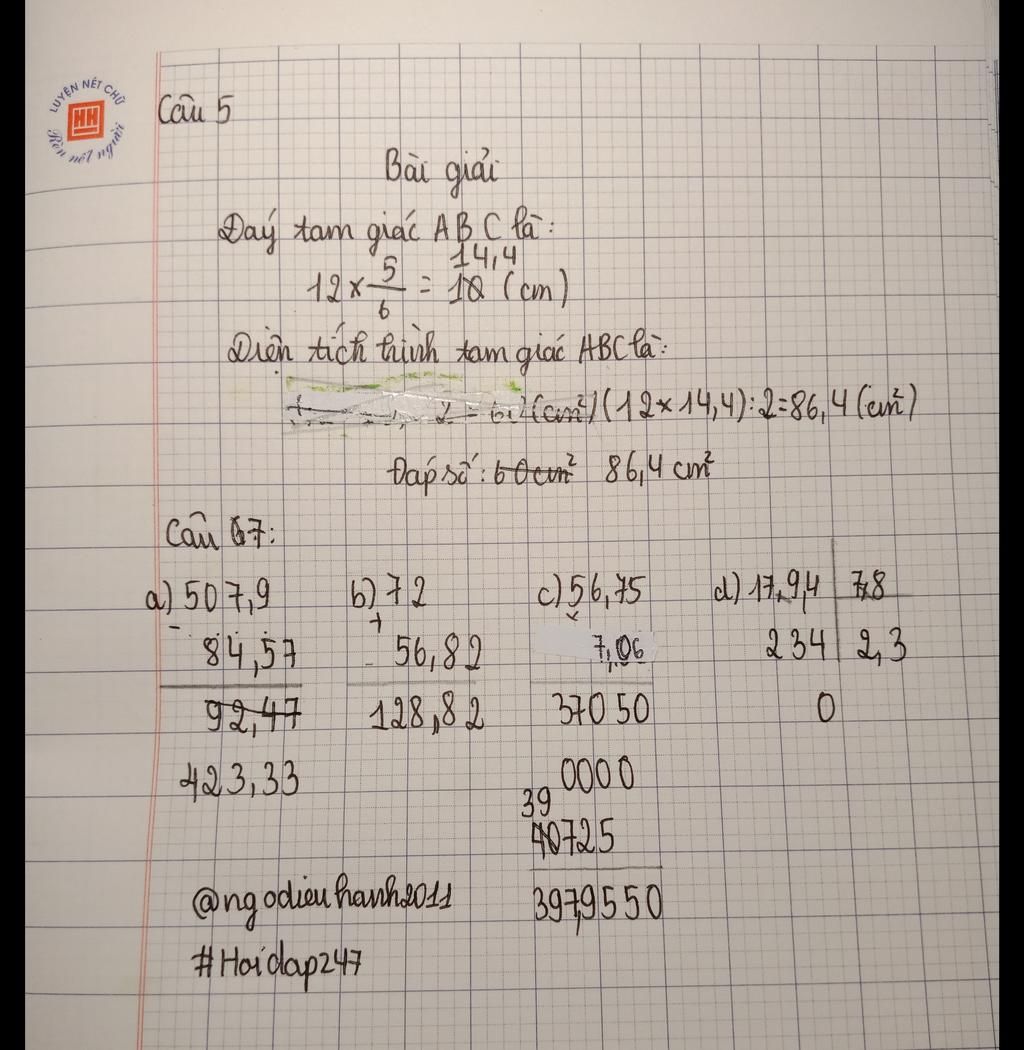 LUYỆN NÉT CHỮ
HH
Rèn nết người
Câu 5
Bài giải
Đáy tam giác ABC là:
14,4
12 × 5/6 = 10 (cm)
Diện tích hình tam giác ABC là:
2 = 60 (cm²) (12 × 14,4) : 2 = 86,4 (cm²)
Đáp số : 60cm² 86,4 cm²
Câu 67:
a) 507,9 b) 72 c) 56,75 d) 17,9,4 7,8
- + ×
84,57 56,82 7,06 234 2,3
92,47 128,82 37050 0
423,33 0000
39
40725
@ngodieuhanh2011 397,9550
#Hoidap247